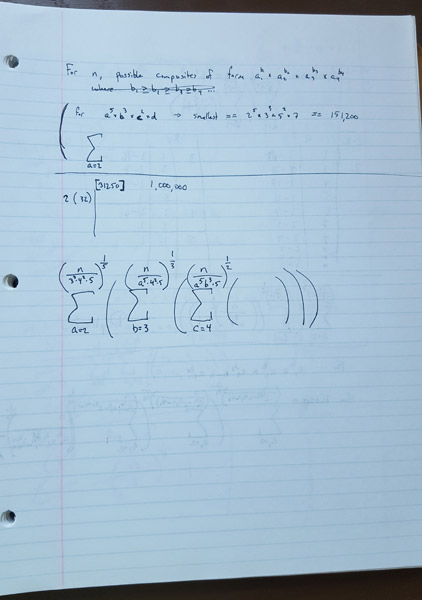 For n, possible composites of form a₁^b₁ * a₂^b₂ * a₃^b₃ * a₄^b₄
where b₁ ≥ b₂ ≥ b₃ ≥ b₄ ...
( for a⁵ * b³ * c² * d → smallest == 2⁵ * 3³ * 5² * 7 == 151,200
∑ a=2
2 (32) [31250] 1,000,000
(n / 3³·4²·5)^(1/5) (n / a⁵·4²·5)^(1/3) (n / a⁵b³·5)^(1/2)
∑ ( ∑ ( ∑ ( ) ) )
a=2 b=3 c=4